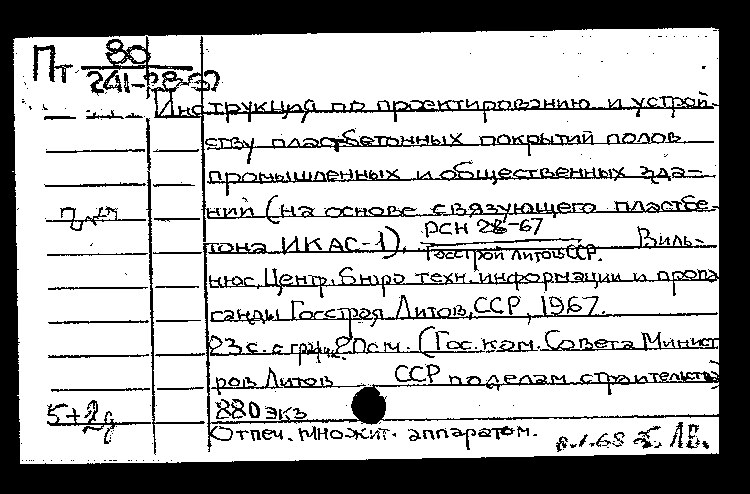 Пт 80
241-28-67
Инструкция по проектированию и устрой-
ству пластбетонных покрытий полов
промышленных и общественных зда-
ний (на основе связующего пластбе-
тона ИКАС-1). РСН 28-67
Госстрой Литов ССР. Виль-
нюс, Центр. бюро техн. информации и пропа
ганды Госстроя Литов. ССР, 1967.
23 с. с граф. 20 см. (Гос. ком. Совета Минист
ров Литов ССР по делам строительства
5+2д 880 экз
Отпеч. множит. аппаратом. 8.1.68 ЛВ.